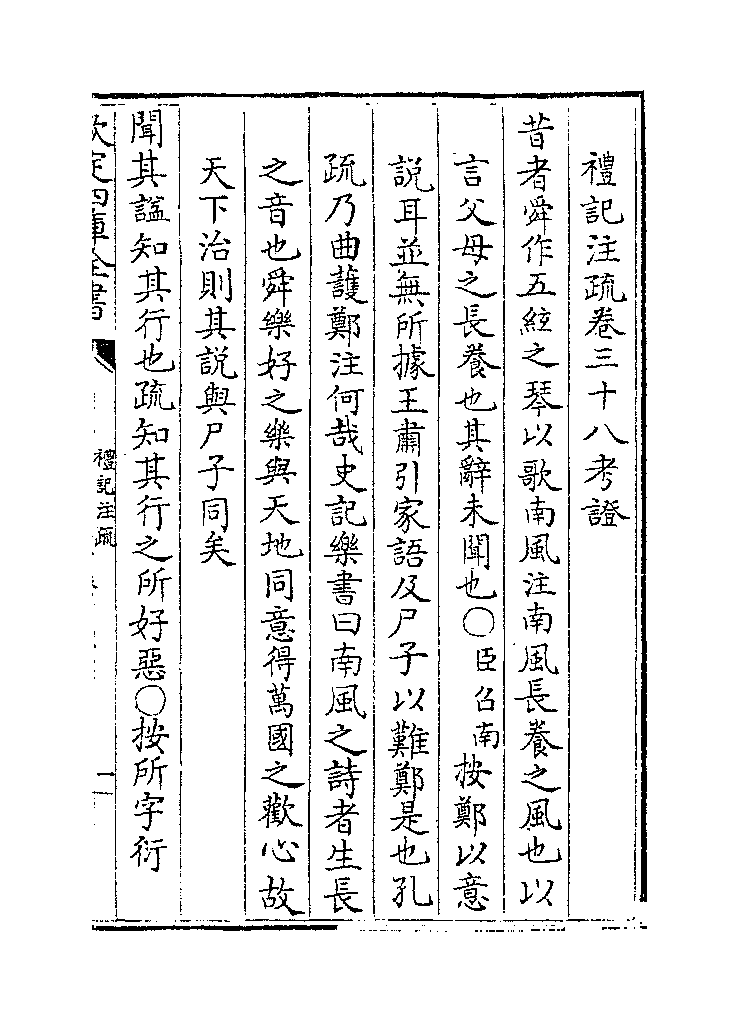 禮記注疏卷三十八考證
昔者舜作五絃之琴以歌南風注南風長養之風也以
言父母之長養也其辭未聞也〇臣召南按鄭以意
說耳並無所據王肅引家語及尸子以難鄭是也孔
疏乃曲護鄭注何哉史記樂書曰南風之詩者生長
之音也舜樂好之樂與天地同意得萬國之歡心故
天下治則其說與尸子同矣
聞其諡知其行也疏知其行之所好惡〇按所字衍
欽定四庫全書
禮記注疏
一